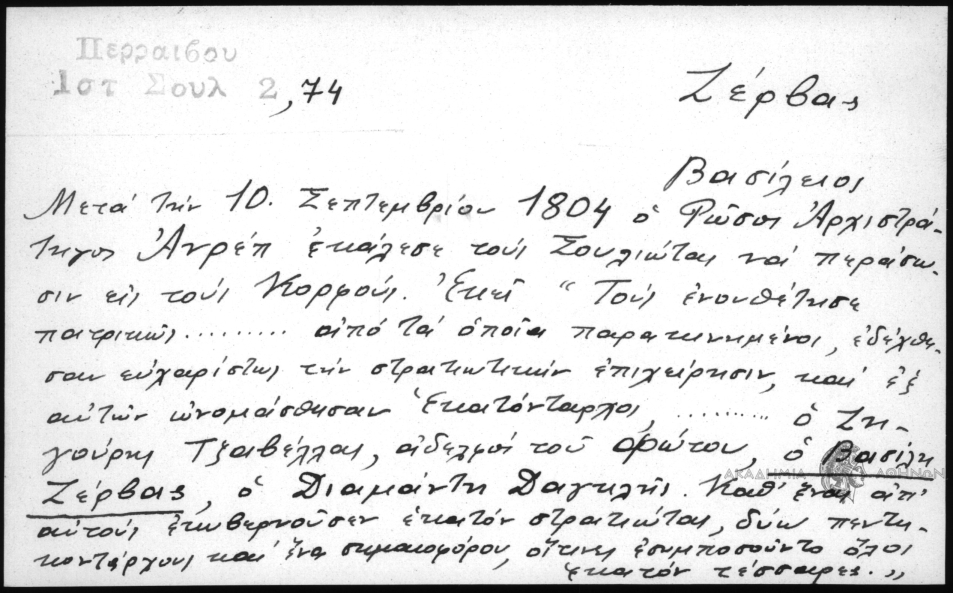 Περραιβου
Ιστ Σουλ 2,74
Ζέρβας
Βασίλειος
Μετά τήν 10. Σεπτεμβρίου 1804 ὁ Ρῶσος Ἀρχιστρά-
τηγος Ἀνρέπ ἐκάλεσε τούς Σουλιώτας νά περάσω-
σιν εἰς τούς Κορφούς. Ἐκεῖ "Τούς ἐνουθέτησε
πατρικῶς ......... ἀπό τά ὁποῖα παρακινημένοι, ἐδέχθη-
σαν εὐχαρίστως τήν στρατιωτικήν ἐπιχείρησιν, καί ἐξ
αὐτῶν ὠνομάσθησαν Ἑκατόνταρχοι, ......... ὁ Ζη-
γούρης Τζαβέλλας, ἀδελφός τοῦ Φώτου, ὁ Βασίλη
Ζέρβας, ὁ Διαμάντη Δαγκλῆς. Καθ' ἕνας ἀπ'
αὐτούς ἐκυβερνοῦσεν ἑκατόν στρατιώτας, δύω πεντη-
κοντάρχους καί ἕνα σημαιοφόρον, οἵτινες ἐσυμποσοῦντο ὅλοι
ἑκατόν τέσσαρες."
ΑΚΑΔΗΜΙΑ ΑΘΗΝΩΝ